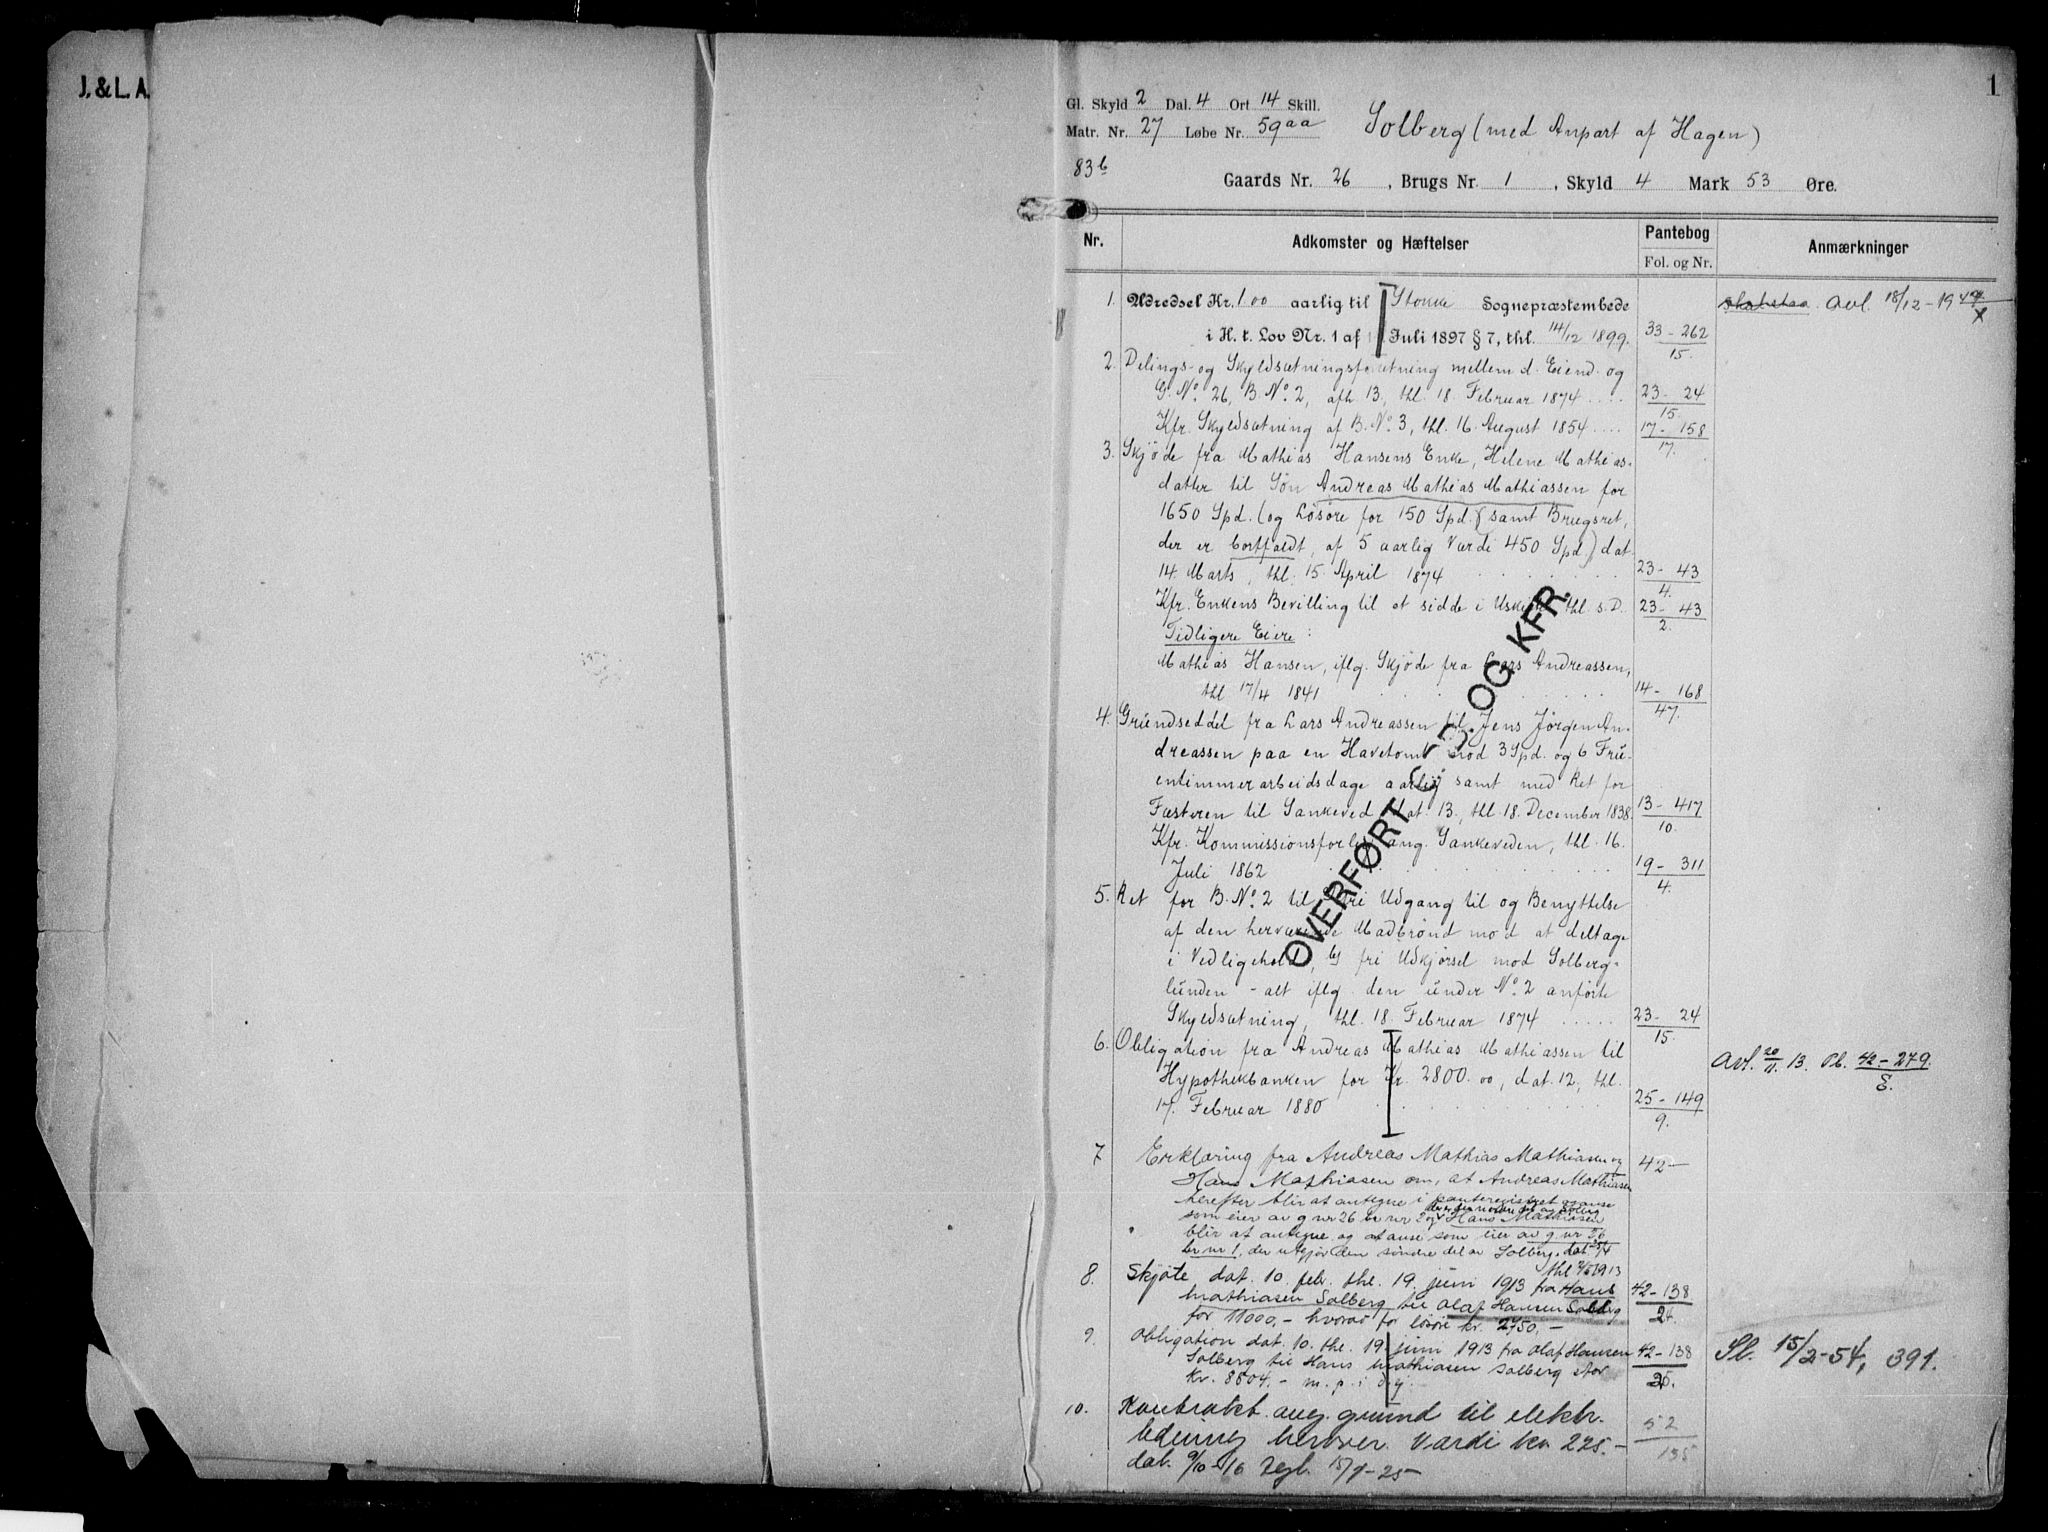 J. & L. A.
1
Gl. Skyld 2 Dal. 4 Ort 14 Skill.
Matr. Nr. 27 Løbe Nr. 59aa
83b
Solberg (med Anpart af Hagen)
Gaards Nr. 26, Brugs Nr. 1, Skyld 4 Mark 53 Øre.
Nr. Adkomster og Hæftelser Pantebog Anmærkninger
Fol. og Nr.
1. Udredsel Kr. 1 00 aarlig til Stokke Sognepræstembede
i H. t. Lov Nr. 1 af Juli 1897 § 7, thl. 14/12 1899. 33-262/15.
Avl. 18/12-19
2. Delings- og Skyldsætningsforretning mellem d. Eiend. og
G. No. 26, B. No. 2, afh. 13, thl. 18. Februar 1874 .... 23-24/15.
Kfr. Skyldsætning af B. No. 3, thl. 16. August 1854 .... 17-158/17.
3. Skjøde fra Mathias Hansens Enke, Helene Mathias-
datter til Søn Andreas Mathias Mathiassen for
1650 Spd. (og Løsøre for 150 Spd. (samt Brugsret,
der er bortfaldt, af 5 aarlig Værdi 450 Spd.) dat.
14. Marts, thl. 15. April 1874 23-43/4.
Kfr. Enkens Bevilling til at sidde i Uskiftet thl. s. D. 23-43/2.
Tidligere Eiere:
Mathias Hansen, iflg. Skjøde fra Lars Andreassen,
thl. 17/4 1841 14-168/47.
4. Grundseddel fra Lars Andreassen til Jens Jørgen An-
dreassen paa en Havetomt mod 3 Spd. og 6 Fru-
entimmerarbeidsdage aarlig samt med Ret for
Fæsteren til Sankeved, dat. 13., thl. 18. December 1838. 13-417/10.
Kfr. Kommissionsforlig ang. Sankeveden, thl. 16.
Juli 1862 19-311/4.
OVERFØRT OG KFR.
5. Ret for B. No. 2 til fri Udgang til og Benyttelse
af den herværende Madbrønd mod at deltage
i Vedligehold, b) fri Udkjørsel mod Solberg-
lunden - alt iflg. den under No. 2 anførte
Skyldsætning, thl. 18. Februar 1874 ..... 23-24/15.
6. Obligation fra Andreas Mathias Mathiassen til
Hypothekbanken for Kr. 2800.00, dat. 12., thl.
17. Februar 1880 25-149/9.
Avl. 20/11. 13. Pb. 42-279./8.
7 Erklæring fra Andreas Mathias Mathiasen og 42-
Hans Mathiasen om, at Andreas Mathiasen
herefter blir at antegne i panteregistret
som eier av g nr 26 br nr 2 og Hans Mathiasen
blir at antegne og anse som eier av g nr 26
br nr 1, der utgjør den søndre del av Solberg, dat.
8. Skjøte dat. 10. febr. thl. 19. juni 1913 fra Hans 42-138/24.
Mathiasen Solberg til Olaf Hansen Solberg
for 11000,- hvorav for løsøre kr. 2750,-
9. Obligation dat. 10. thl. 19. juni 1913 fra Olaf Hansen 42-138/25.
Solberg til Hans Mathiasen Solberg stor
kr. 8504.- m. p. i d. ej.
Sl. 15/2-54, 391.
10. Kontrakt ang. grund til elektr. 52/135
ledning herover. Værdi kr 225.-
dat. 9/10-16